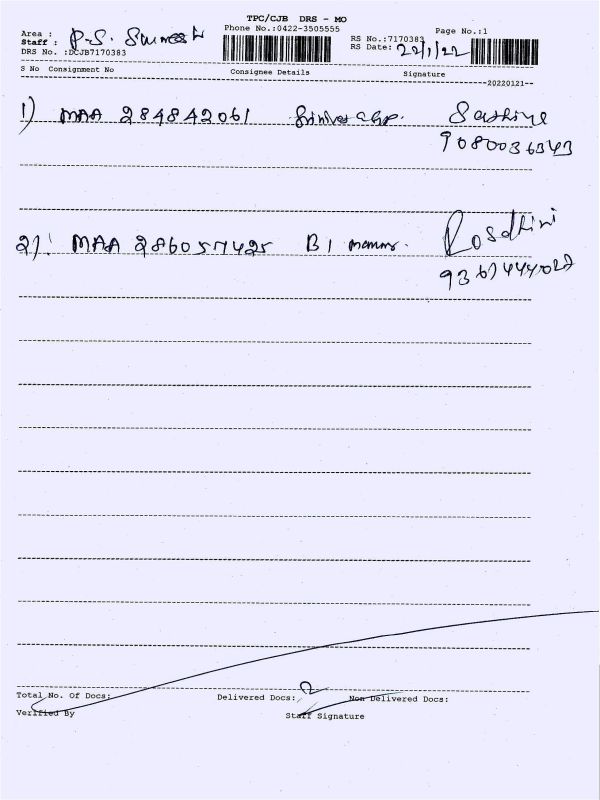 TPC/CJB DRS - MO
Area :
Staff : P.S.
Phone No.:0422-3505555
RS No.:7170383
Page No.:1
DRS No. :DCJB7170383
RS Date: 22/1/22
S No Consignment No Consignee Details Signature
--20220121--
1) MAA 284842061
9080036343
2) MAA 286057425 B1
Rosdhini
9367444027
Total No. Of Docs:
Delivered Docs: 2
Non Delivered Docs:
Verified By
Staff Signature